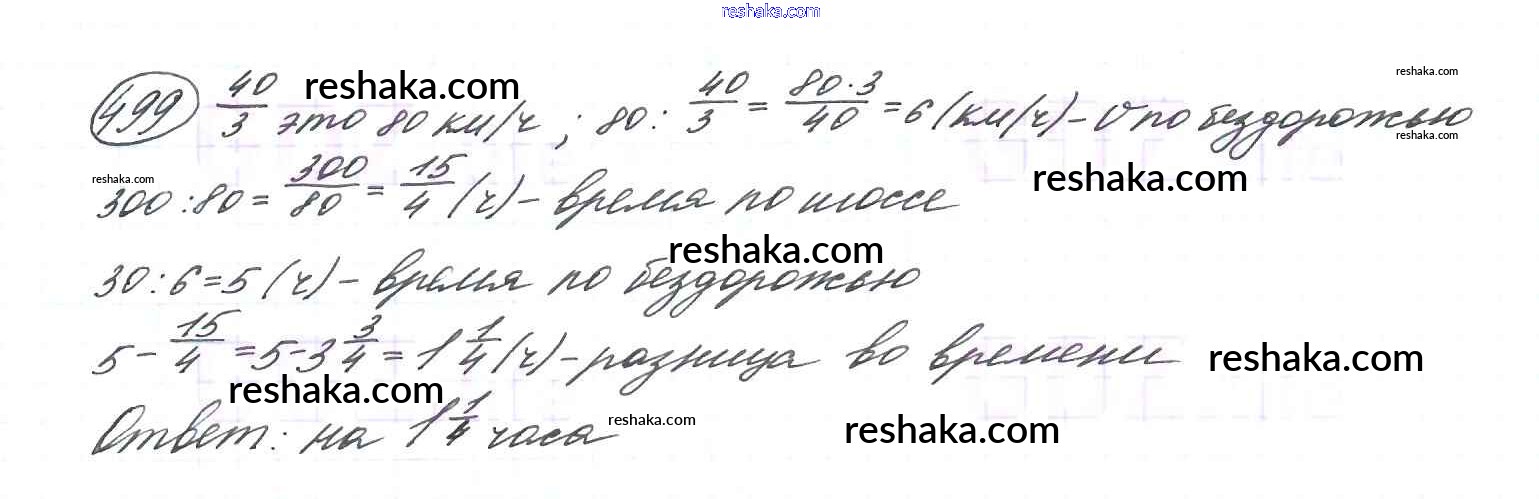 reshaka.com
499 40/3 это 80 км/ч ; 80 : 40/3 = 80·3/40 = 6 (км/ч) – V по бездорожью
reshaka.com
reshaka.com
reshaka.com
300 : 80 = 300/80 = 15/4 (ч) – время по шоссе
reshaka.com
reshaka.com
30 : 6 = 5 (ч) – время по бездорожью
reshaka.com
5 – 15/4 = 5 – 3 3/4 = 1 1/4 (ч) – разница во времени
reshaka.com
reshaka.com
Ответ: на 1 1/4 часа
reshaka.com
reshaka.com